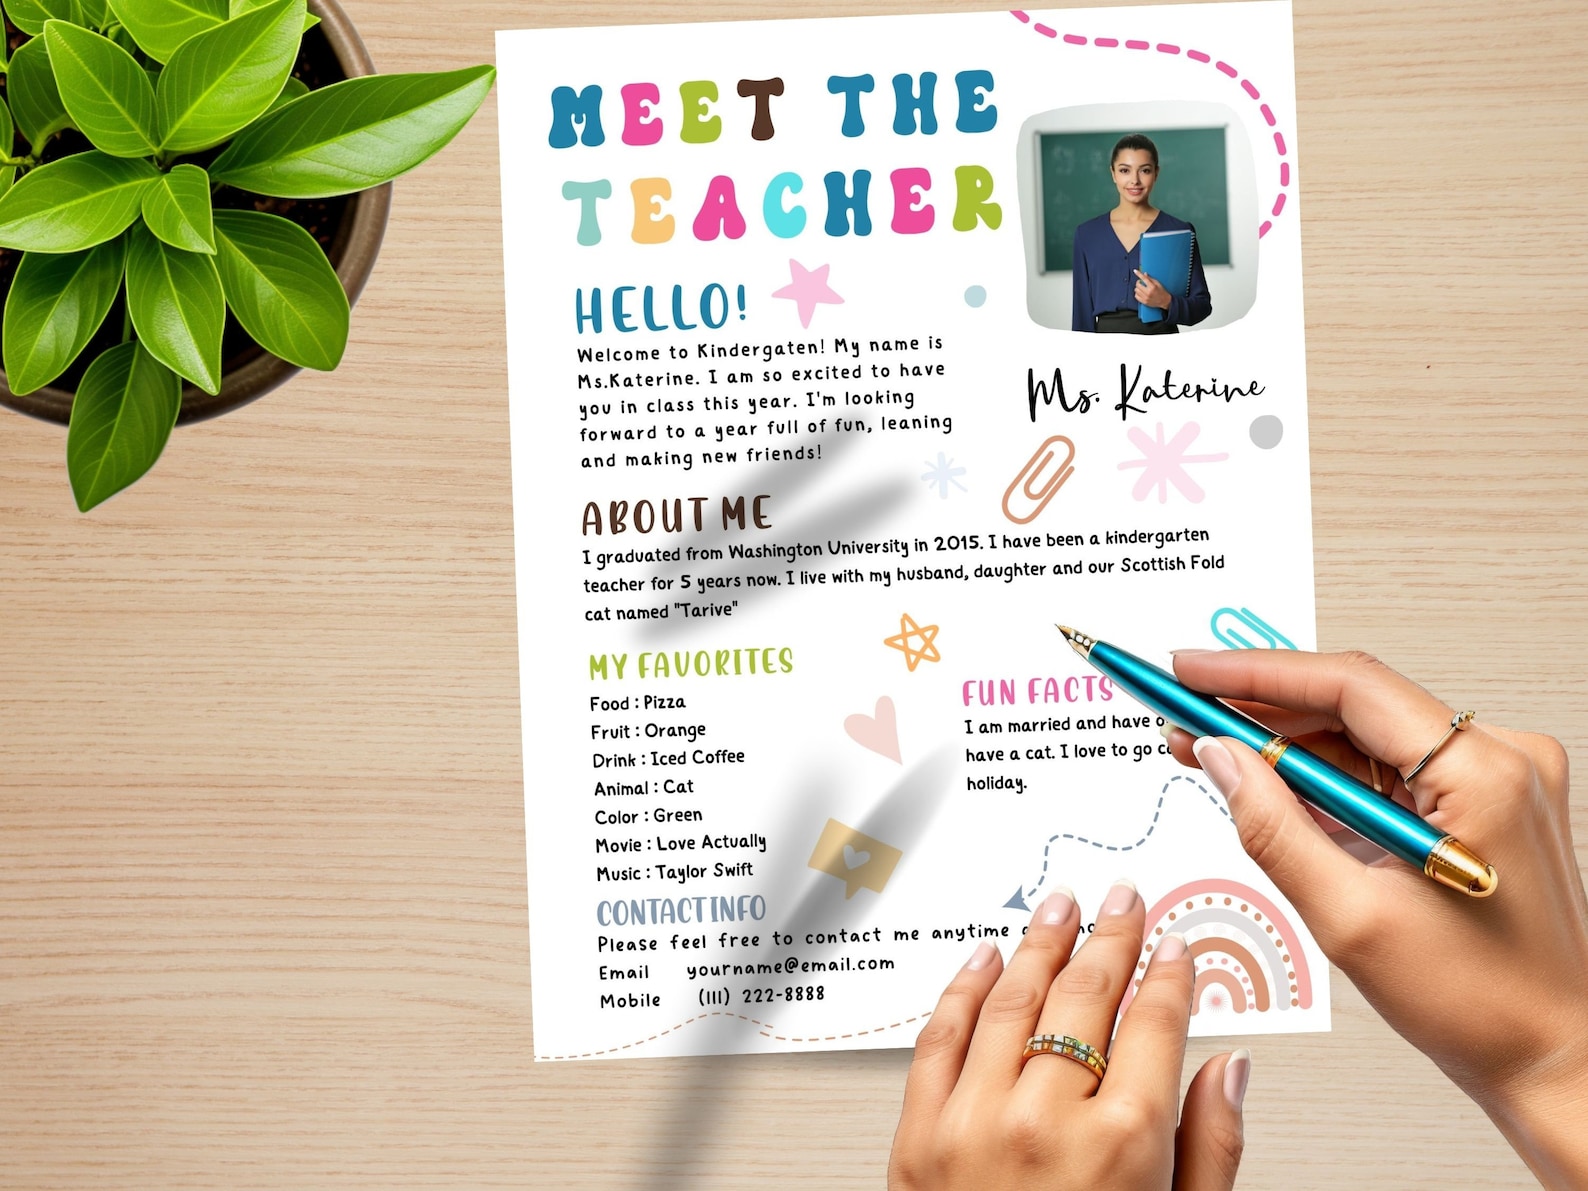 MEET THE
TEACHER
HELLO!
Welcome to Kindergaten! My name is
Ms.Katerine. I am so excited to have
you in class this year. I'm looking
forward to a year full of fun, leaning
and making new friends!
Ms. Katerine
ABOUT ME
I graduated from Washington University in 2015. I have been a kindergarten
teacher for 5 years now. I live with my husband, daughter and our Scottish Fold
cat named "Tarive"
MY FAVORITES
Food : Pizza
Fruit : Orange
Drink : Iced Coffee
Animal : Cat
Color : Green
Movie : Love Actually
Music : Taylor Swift
FUN FACTS
I am married and have
have a cat. I love to go
holiday.
CONTACT INFO
Please feel free to contact me anytime
Email yourname@email.com
Mobile (111) 222-8888